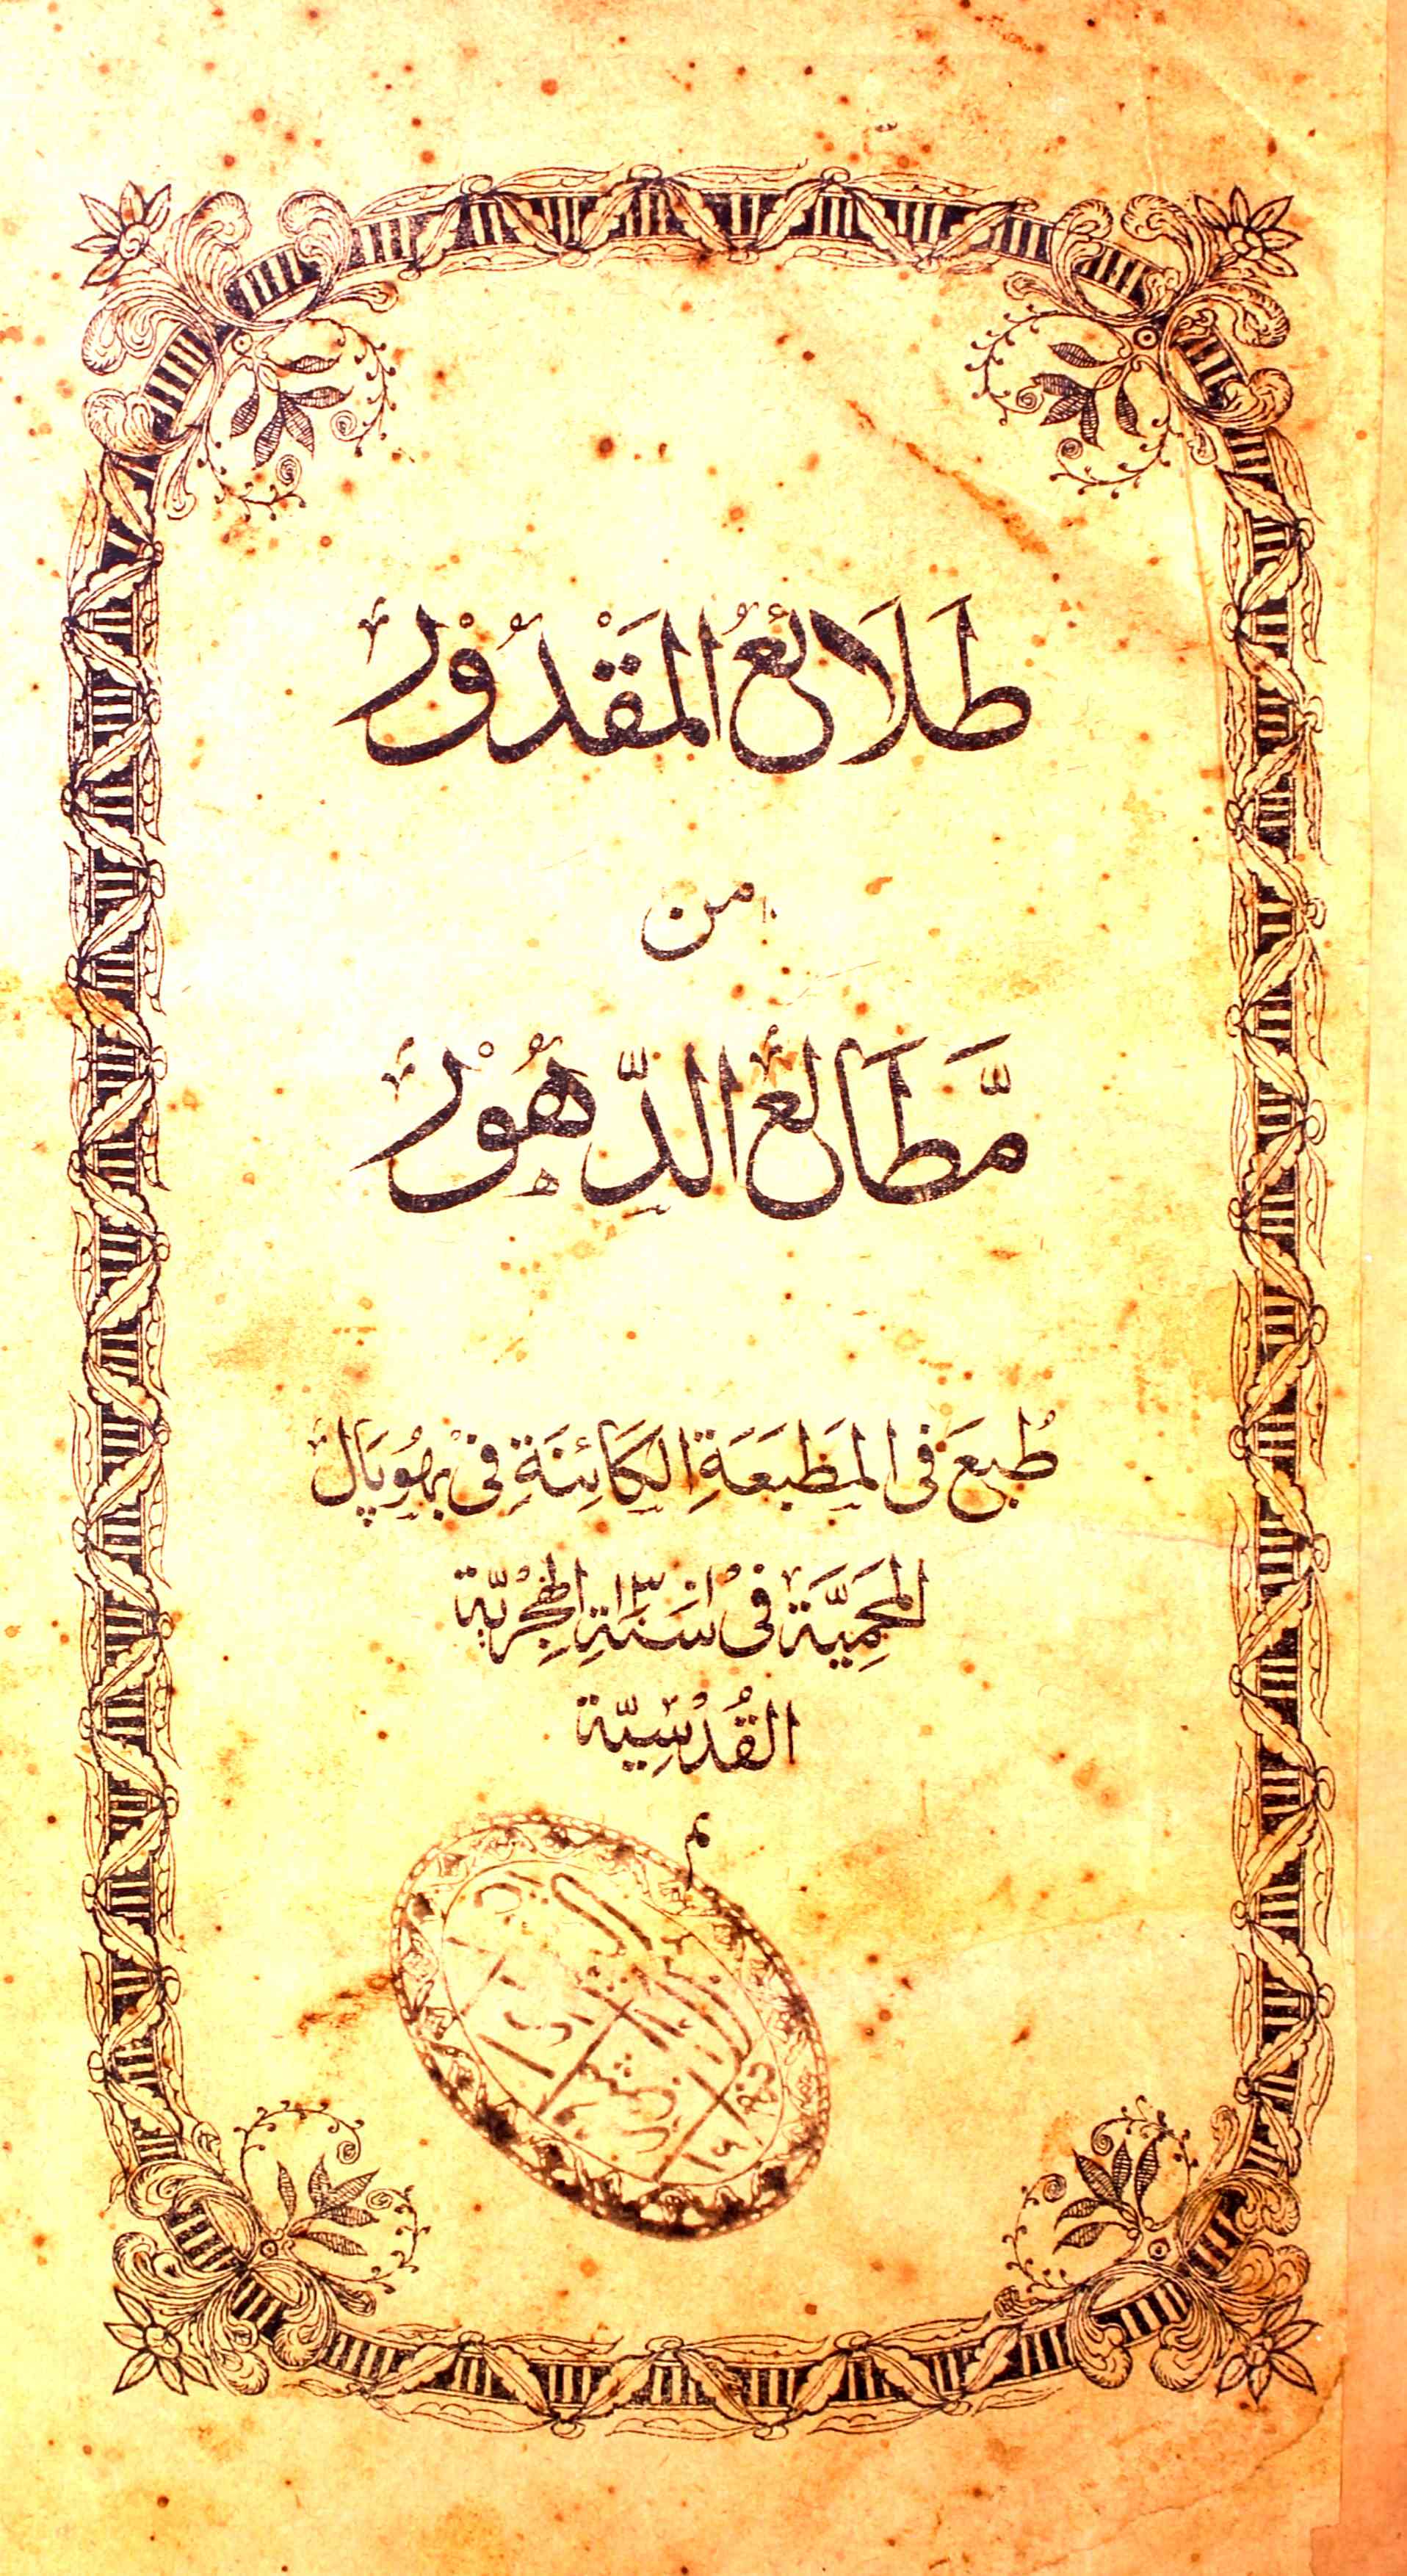 طَلَائِعُ المَقْدُوْرْ
مِن
مَّطَالِعِ الدُّهُوْرْ
طُبِعَ فِی المَطْبَعَةِ الکَائِنَةِ فِیْ بھُوپَال
المَحْمِیَّة فِیْ سَنَةِ الهِجْرِیَّة
القُدْسِیَّة